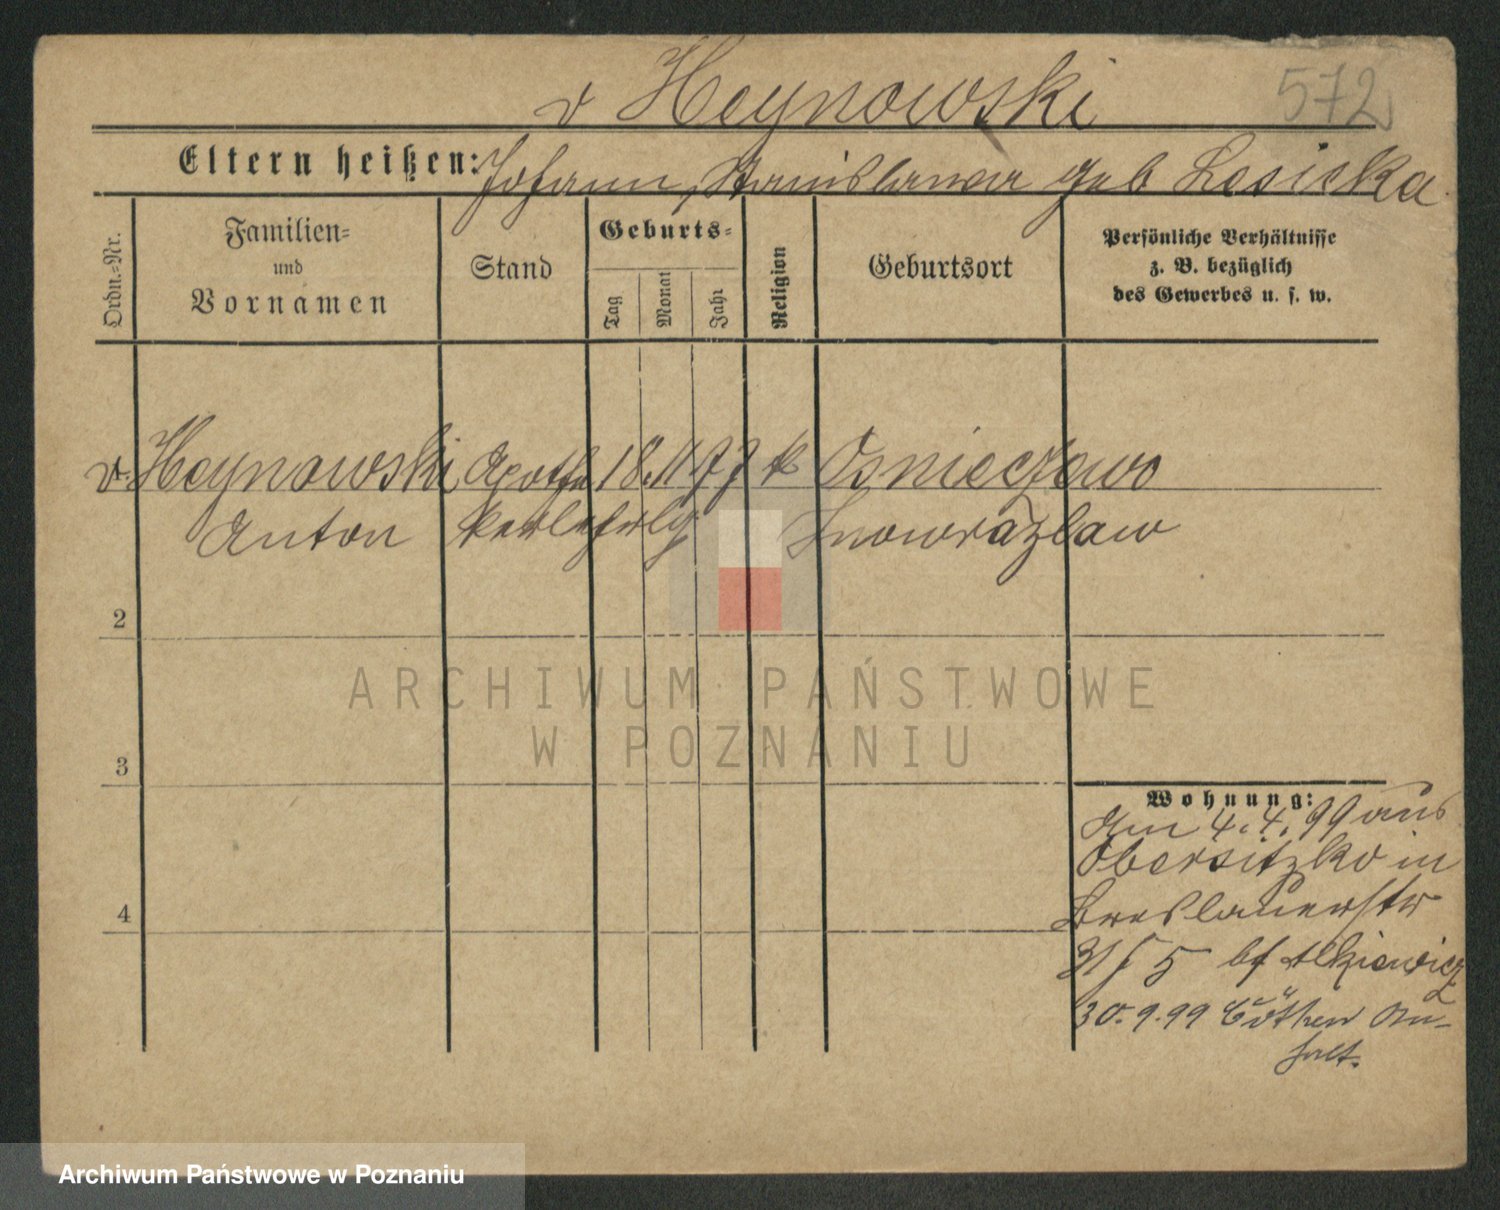 v Heynowski
572
Eltern heißen: Johann, Stanislawa geb Lesicka
Ordn.=Nr.
Familien=
und
Vornamen
Stand
Geburts=
Tag
Monat
Jahr
Religion
Geburtsort
Persönliche Verhältnisse
z. B. bezüglich
des Gewerbes u. s. w.
v. Heynowski Apothe 18. 11 77 k Osnieczewo
Anton kerlehrlg Inowrazlaw
2
ARCHIWUM PAŃSTWOWE
W POZNANIU
3
Wohnung:
Am 4. 4. 99 aus
Obersitzko in
Breslauerstr
31 5 bei
30. 9. 99 Cöthen An-
halt.
4
Archiwum Państwowe w Poznaniu